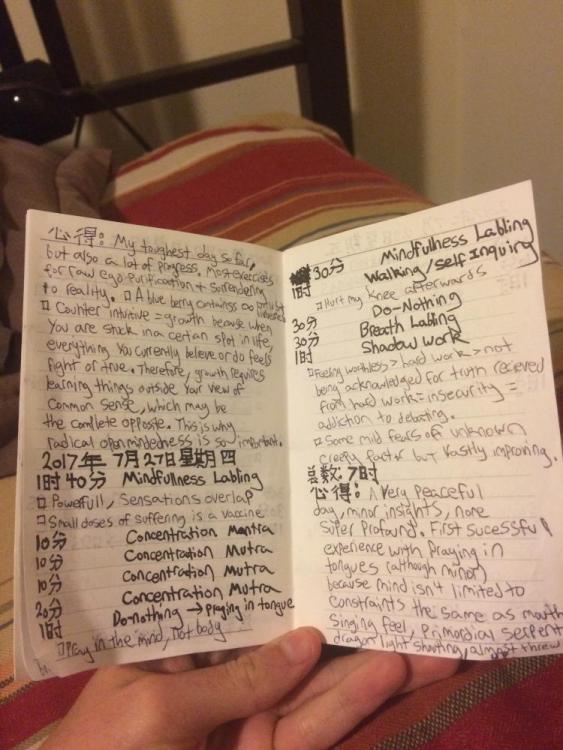 心得: My toughest day so far,
but also a lot of progress. Most exercises
for raw ego purification + surrendering
to reality. □ A blue berry containss ∞
□ Counter intuitive = growth because when
You are stuck in a certain spot in life,
everything You currently believe or do feels
right or true. Therefore, growth requires
learning things outside Your view of
Common sense, which may be
the complete opposite. This is why
radical openmindedness is so important.
2017年 7月27日星期四
1时40分 Mindfullness Labling
□ Powerfull, Sensations overlap
□ Small doses of suffering is a vaccine
10分 Concentration Mantra
10分 Concentration Mutra
10分 Concentration Mutra
10分 Concentration Mutra
20分 Do-nothing → praying in tongue
1时
□ Pray in the mind, not body
30分 Mindfullness Labling
1时 Walking/Self Inquiry
□ Hurt my knee afterwards
30分 Do-Nothing
30分 Breath Labling
1时 Shadow work
□ Feeling worthless > hard work > not
being acknowledged for truth recieved
from hard work = insecurity =
addiction to debating.
□ Some mild fears of unknown
creepy factor but vastly improving.
总数 7时
心得: A Very peaceful
day, minor insights, none
super profound. First sucessful
experience with Praying in
tongues (although minor)
because mind isn't limited to
constraints the same as mouth
Singing feel, Primordial Serpent
dragon light shooting, almost threw